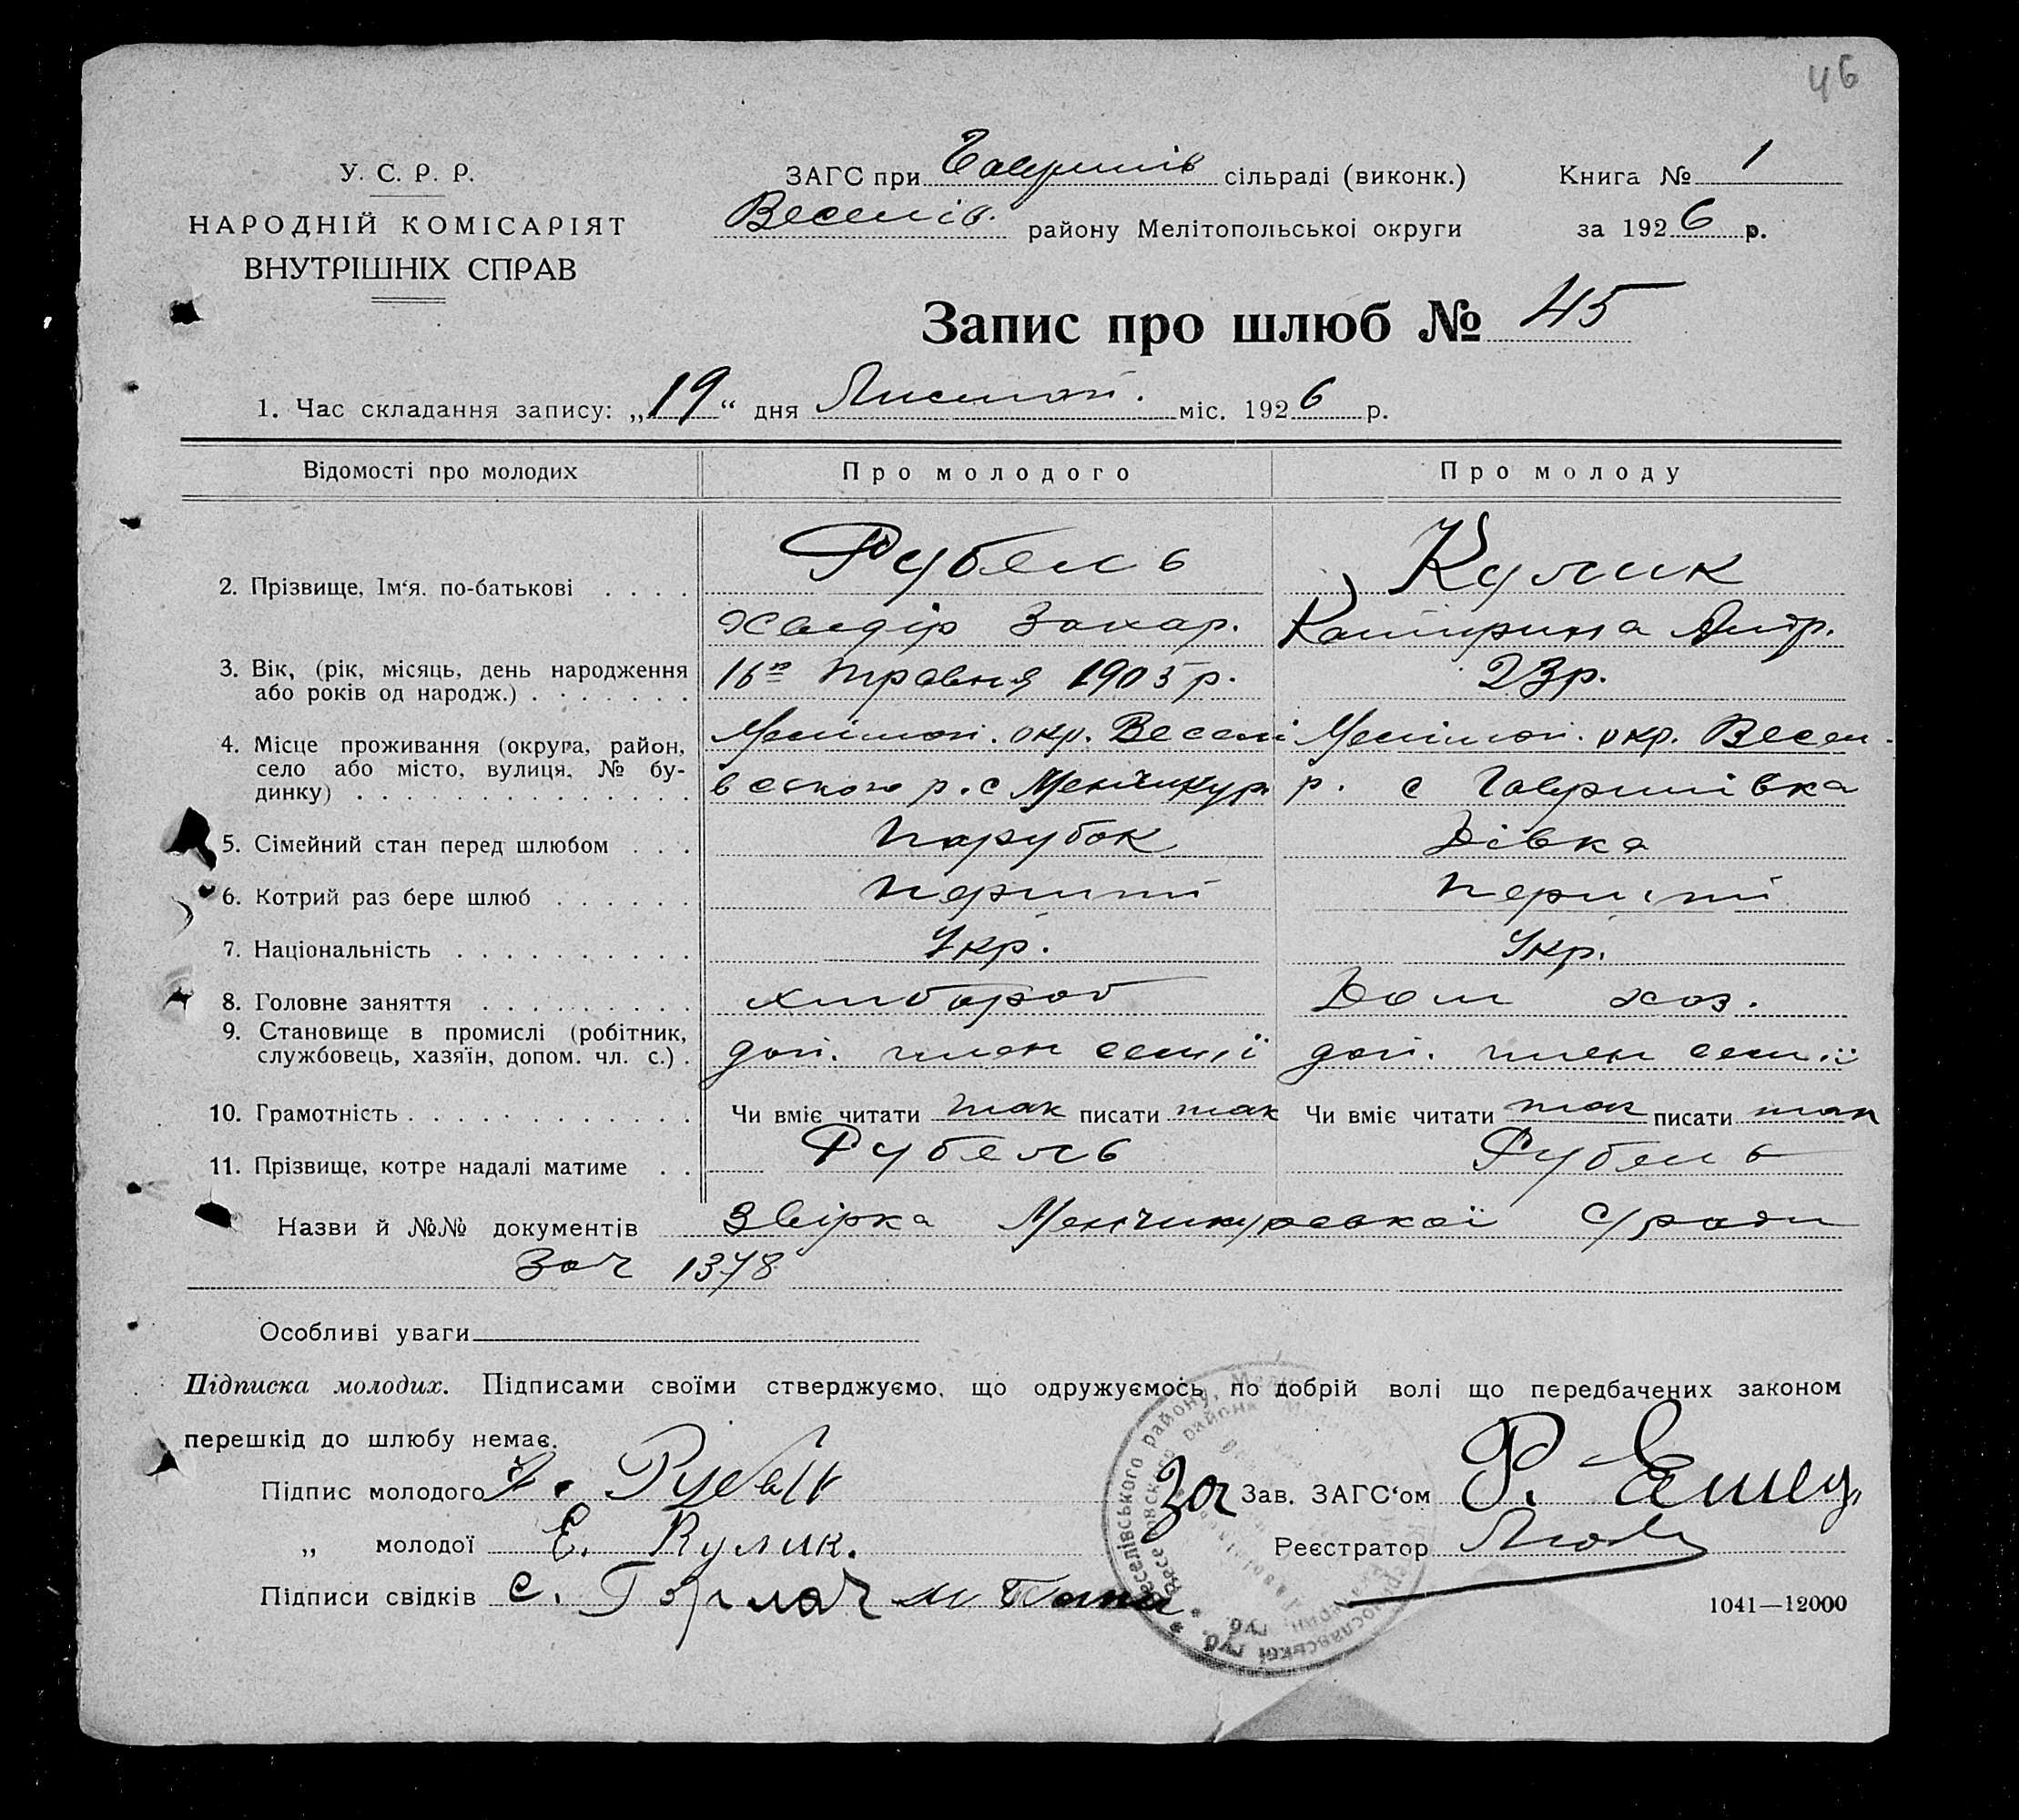 46
У. С. Р. Р.
НАРОДНІЙ КОМІСАРІЯТ
ВНУТРІШНІХ СПРАВ
ЗАГС при Гаврилів сільраді (виконк.) Книга № 1
Веселів. району Мелітопольськоі округи за 1926 р.
Запис про шлюб № 45
1. Час складання запису: „19“ дня Листоп. міс. 1926 р.
Відомості про молодих Про молодого Про молоду
2. Прізвище, Ім‘я. по-батькові Рубель Кулик
Захар. Катирина
3. Вік, (рік, місяць, день народження
або років од народж.) 16го травня 1905 р. 23 р.
4. Місце проживання (округа, район,
село або місто, вулиця, № бу-
динку)
Мелітоп. окр. Веселі Мелітоп. окр. Весел.
вського р. с Менчикур. р. с Гаврилівка
5. Сімейний стан перед шлюбом Парубок Дівка
6. Котрий раз бере шлюб перший перший
7. Національність Укр. Укр.
8. Головне заняття хлібороб Дом хоз.
9. Становище в промислі (робітник,
службовець, хазяїн, допом. чл. с.)
доп. член семії доп. член семії
10. Грамотність Чи вміє читати так писати так Чи вміє читати так писати так
11. Прізвище, котре надалі матиме Рубель Рубель
Назви й №№ документів Звірка Менчикурської с/ради
за ч 1378
Особливі уваги
Підписка молодих. Підписами своїми стверджуємо, що одружуємось по добрій волі що передбачених законом
перешкід до шлюбу немає.
Підпис молодого Рубель
За Зав. ЗАГС‘ом
„ молодої Е. Кулик.
Реєстратор
Підписи свідків с.
1041—12000